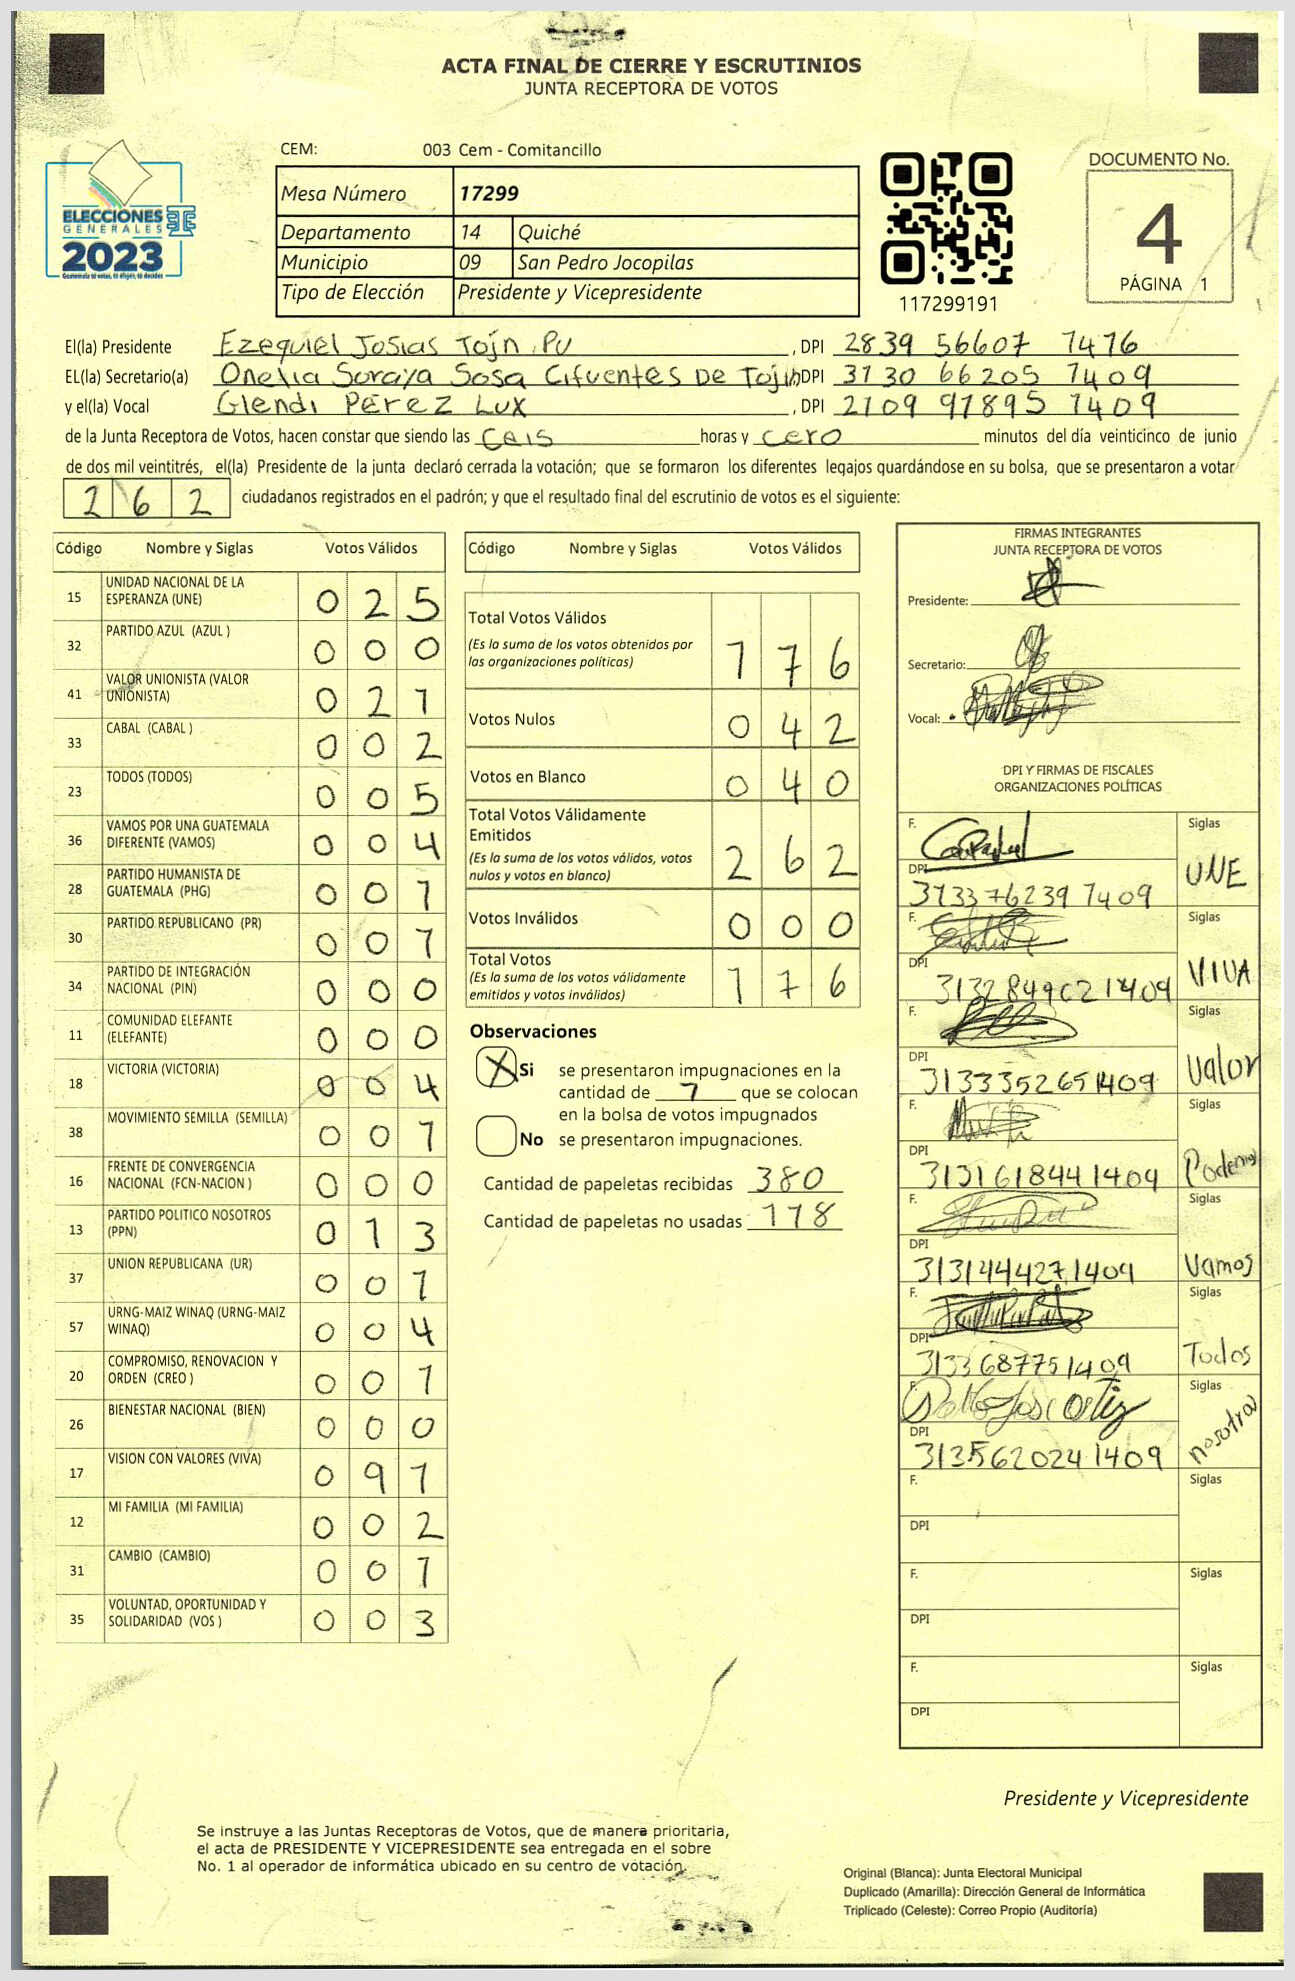 ACTA FINAL DE CIERRE Y ESCRUTINIOS
JUNTA RECEPTORA DE VOTOS
ELECCIONES
GENERALES
2023
CEM: 003 Cem - Comitancillo
Mesa Número 17299
Departamento 14 Quiché
Municipio 09 San Pedro Jocopilas
Tipo de Elección Presidente y Vicepresidente
117299191
DOCUMENTO No.
4
PÁGINA 1
El(la) Presidente Ezequiel Josias Tojn Pu , DPI 2839 56607 1416
EL(la) Secretario(a) Onelia Soraya Sosa Cifuentes De Tojin DPI 3130 66205 1409
y el(la) Vocal Glendi Pérez Lux , DPI 2109 97895 1409
de la Junta Receptora de Votos, hacen constar que siendo las Ceis horas y cero minutos del día veinticinco de junio
de dos mil veintitrés, el(la) Presidente de la junta declaró cerrada la votación; que se formaron los diferentes legajos quardándose en su bolsa, que se presentaron a votar
262 ciudadanos registrados en el padrón; y que el resultado final del escrutinio de votos es el siguiente:
Código Nombre y Siglas Votos Válidos
15 UNIDAD NACIONAL DE LA ESPERANZA (UNE) 0 2 5
32 PARTIDO AZUL (AZUL ) 0 0 0
41 VALOR UNIONISTA (VALOR UNIONISTA) 0 2 1
33 CABAL (CABAL ) 0 0 2
23 TODOS (TODOS) 0 0 5
36 VAMOS POR UNA GUATEMALA DIFERENTE (VAMOS) 0 0 4
28 PARTIDO HUMANISTA DE GUATEMALA (PHG) 0 0 1
30 PARTIDO REPUBLICANO (PR) 0 0 1
34 PARTIDO DE INTEGRACIÓN NACIONAL (PIN) 0 0 0
11 COMUNIDAD ELEFANTE (ELEFANTE) 0 0 0
18 VICTORIA (VICTORIA) 0 0 4
38 MOVIMIENTO SEMILLA (SEMILLA) 0 0 1
16 FRENTE DE CONVERGENCIA NACIONAL (FCN-NACION ) 0 0 0
13 PARTIDO POLITICO NOSOTROS (PPN) 0 1 3
37 UNION REPUBLICANA (UR) 0 0 1
57 URNG-MAIZ WINAQ (URNG-MAIZ WINAQ) 0 0 4
20 COMPROMISO, RENOVACION Y ORDEN (CREO ) 0 0 1
26 BIENESTAR NACIONAL (BIEN) 0 0 0
17 VISION CON VALORES (VIVA) 0 9 1
12 MI FAMILIA (MI FAMILIA) 0 0 2
31 CAMBIO (CAMBIO) 0 0 1
35 VOLUNTAD, OPORTUNIDAD Y SOLIDARIDAD (VOS ) 0 0 3
Código Nombre y Siglas Votos Válidos
Total Votos Válidos 1 7 6
(Es la suma de los votos obtenidos por
las organizaciones políticas)
Votos Nulos 0 4 2
Votos en Blanco 0 4 0
Total Votos Válidamente
Emitidos 2 6 2
(Es la suma de los votos válidos, votos
nulos y votos en blanco)
Votos Inválidos 0 0 0
Total Votos 1 7 6
(Es la suma de los votos válidamente
emitidos y votos inválidos)
Observaciones
X Si se presentaron impugnaciones en la
cantidad de 1 que se colocan
en la bolsa de votos impugnados
No se presentaron impugnaciones.
Cantidad de papeletas recibidas 380
Cantidad de papeletas no usadas 118
FIRMAS INTEGRANTES
JUNTA RECEPTORA DE VOTOS
Presidente:
Secretario:
Vocal:
DPI Y FIRMAS DE FISCALES
ORGANIZACIONES POLÍTICAS
F. Siglas
DPI UNE
3133 76239 1409
F. Siglas
DPI VIVA
3132849621409
F. Siglas
DPI Valor
3133352651409
F. Siglas
DPI Podemos
3131618441409
F. Siglas
DPI Vamos
3131444271409
F. Siglas
DPI Todos
3133687751409
F. Siglas
DPI nosotros
3135620241409
F. Siglas
DPI
F. Siglas
DPI
F. Siglas
DPI
Presidente y Vicepresidente
Se instruye a las Juntas Receptoras de Votos, que de manera prioritaria,
el acta de PRESIDENTE Y VICEPRESIDENTE sea entregada en el sobre
No. 1 al operador de informática ubicado en su centro de votación.
Original (Blanca): Junta Electoral Municipal
Duplicado (Amarilla): Dirección General de Informática
Triplicado (Celeste): Correo Propio (Auditoría)